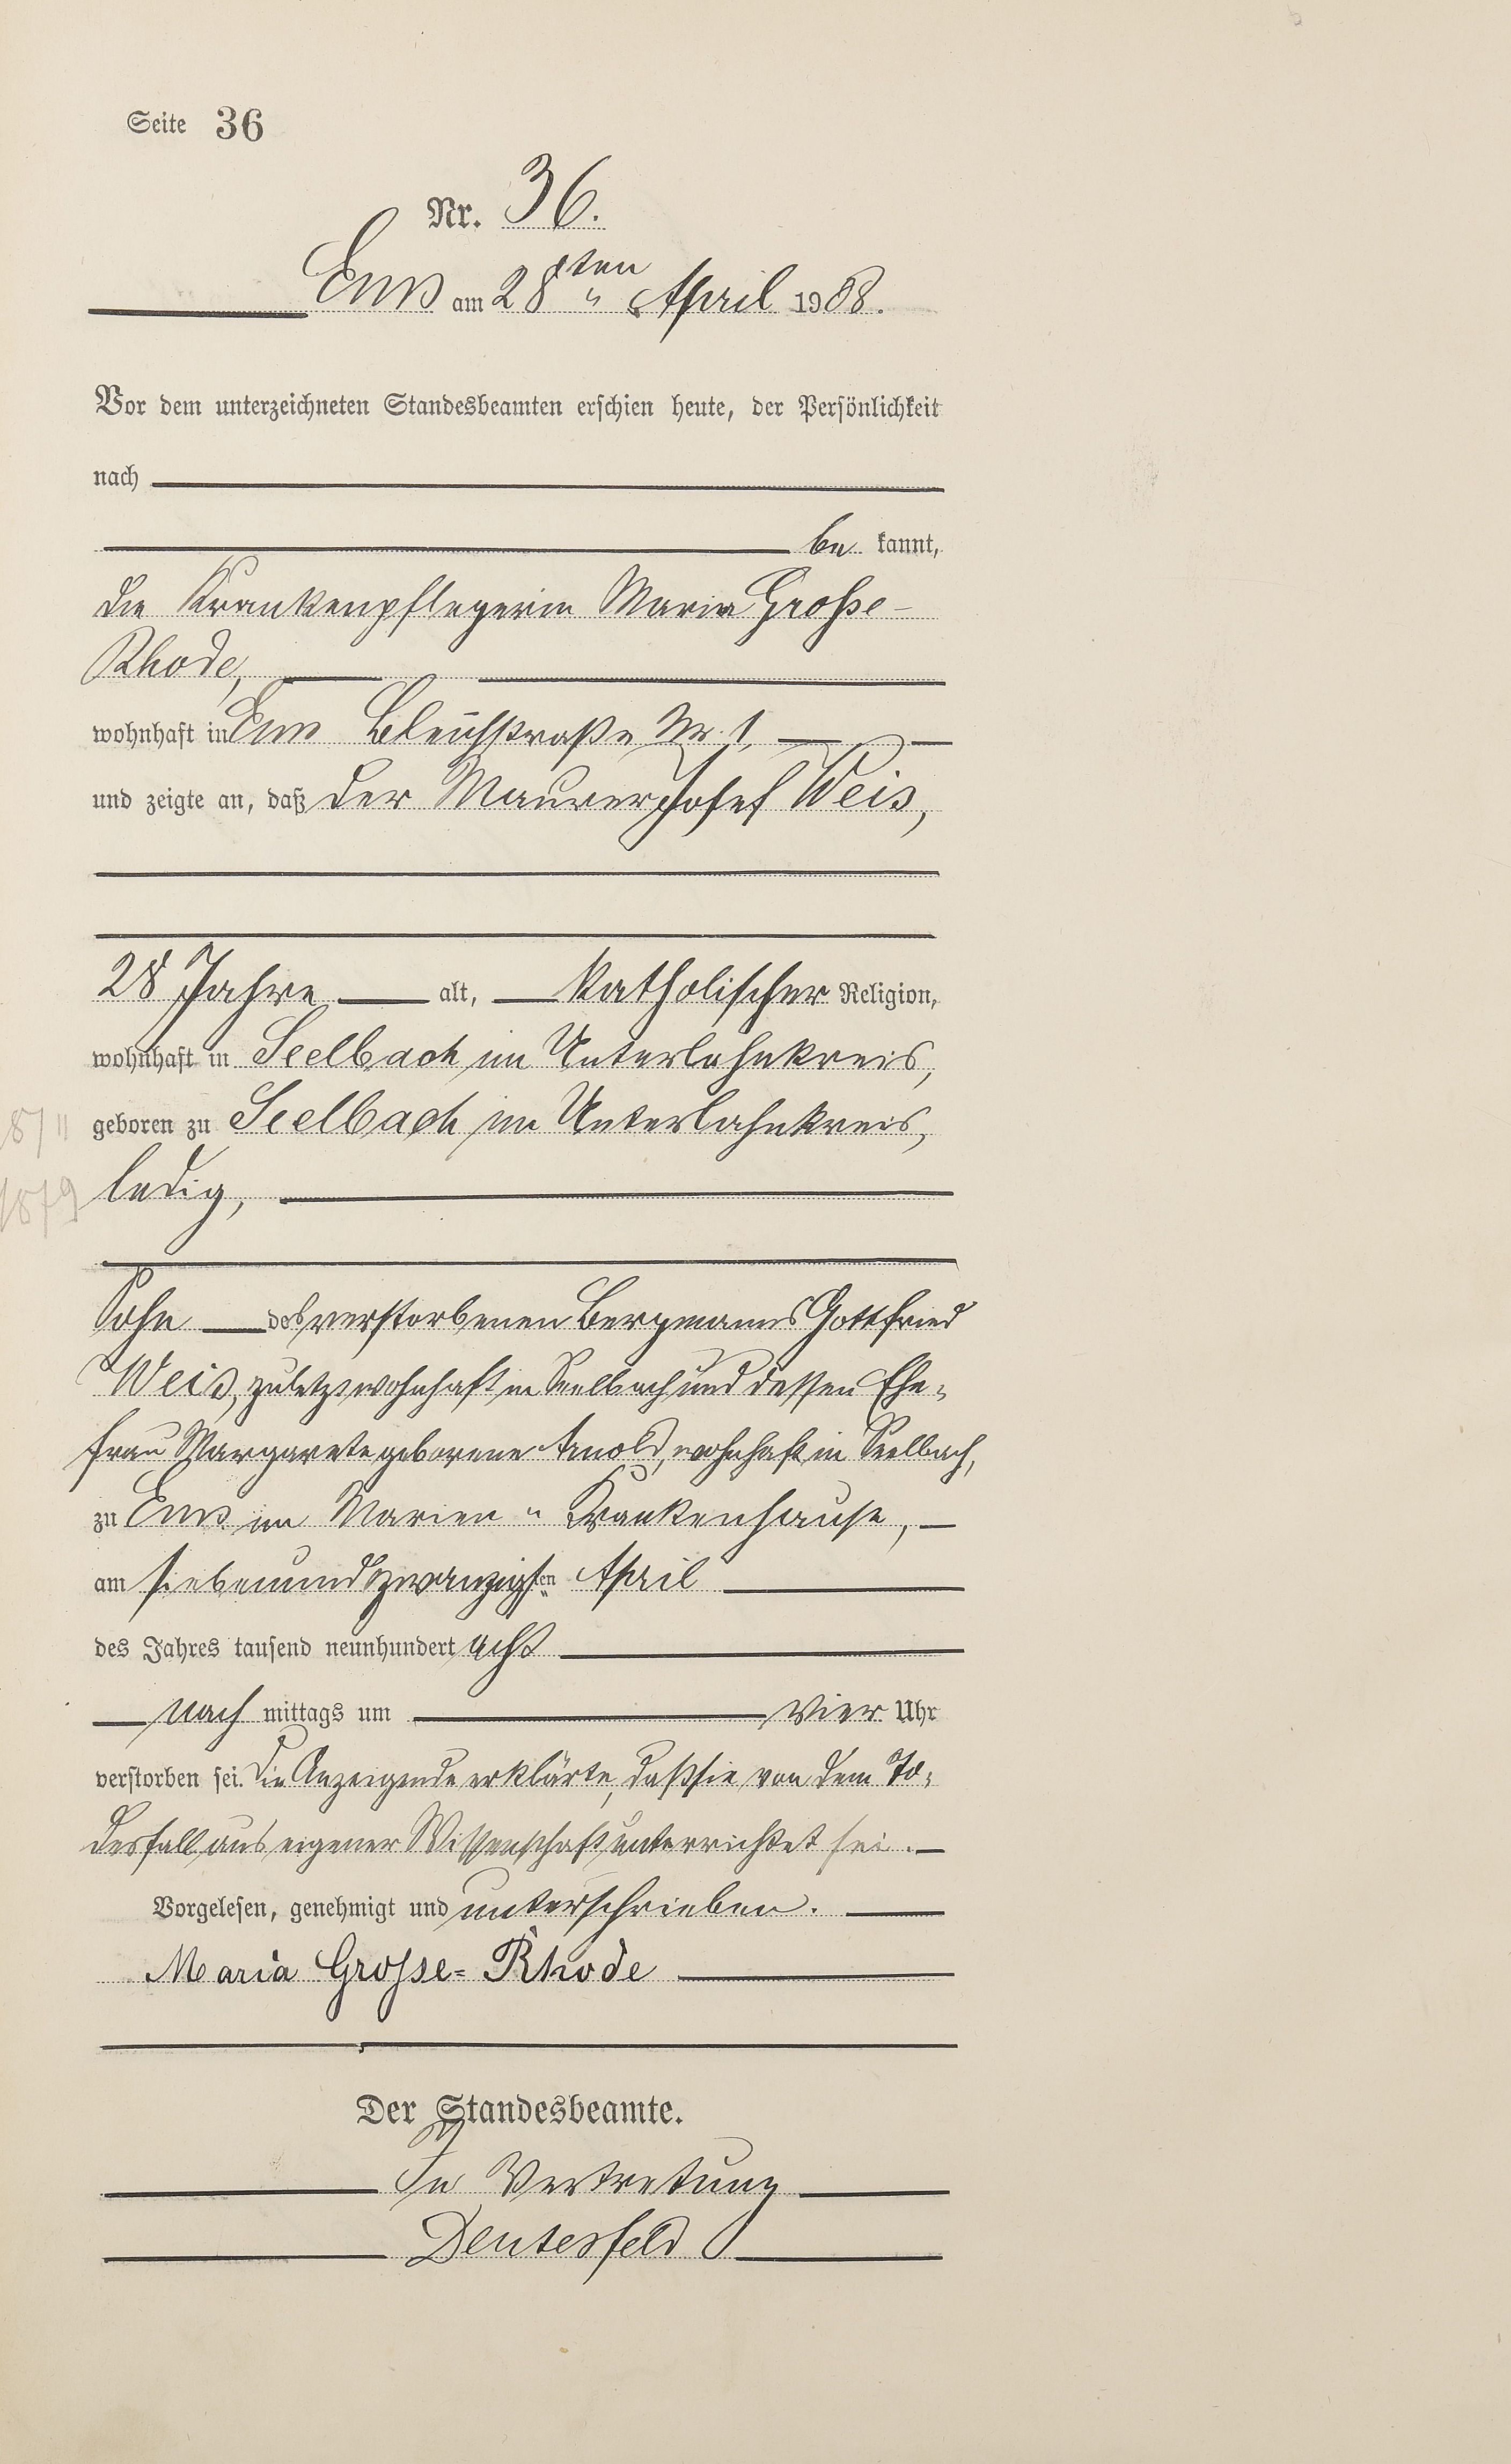 Seite 36
Nr. 36.
Ems am 28ten „ April 1908.
Vor dem unterzeichneten Standesbeamten erschien heute, der Persönlichkeit
nach
be kannt,
die Krankenpflegerin Maria Große-
Rhode,
wohnhaft in Ems Bleichstraße Nr. 1,
und zeigte an, daß der Maurer Josef Weis,
28 Jahre alt, katholischer Religion,
wohnhaft in Seelbach im Unterlahnkreis,
geboren zu Seelbach im Unterlahnkreis,
8/11
1879
ledig,
Sohn des verstorbenen Bergmanns Gottfried
Weis, zuletzt wohnhaft in Seelbach und dessen Ehe-
frau Margarete geborene Arnold, wohnhaft in Seelbach,
zu Ems im Marien „ Krankenhause,
am siebenundzwanzigsten April
des Jahres tausend neunhundert acht
nach mittags um vier Uhr
verstorben sei. Die Anzeigende erklärte, daß sie von dem To-
desfall aus eigener Wissenschaft unterrichtet sei.
Vorgelesen, genehmigt und unterschrieben.
Maria Grosse-Rhode
Der Standesbeamte.
In Vertretung
Deutesfeld